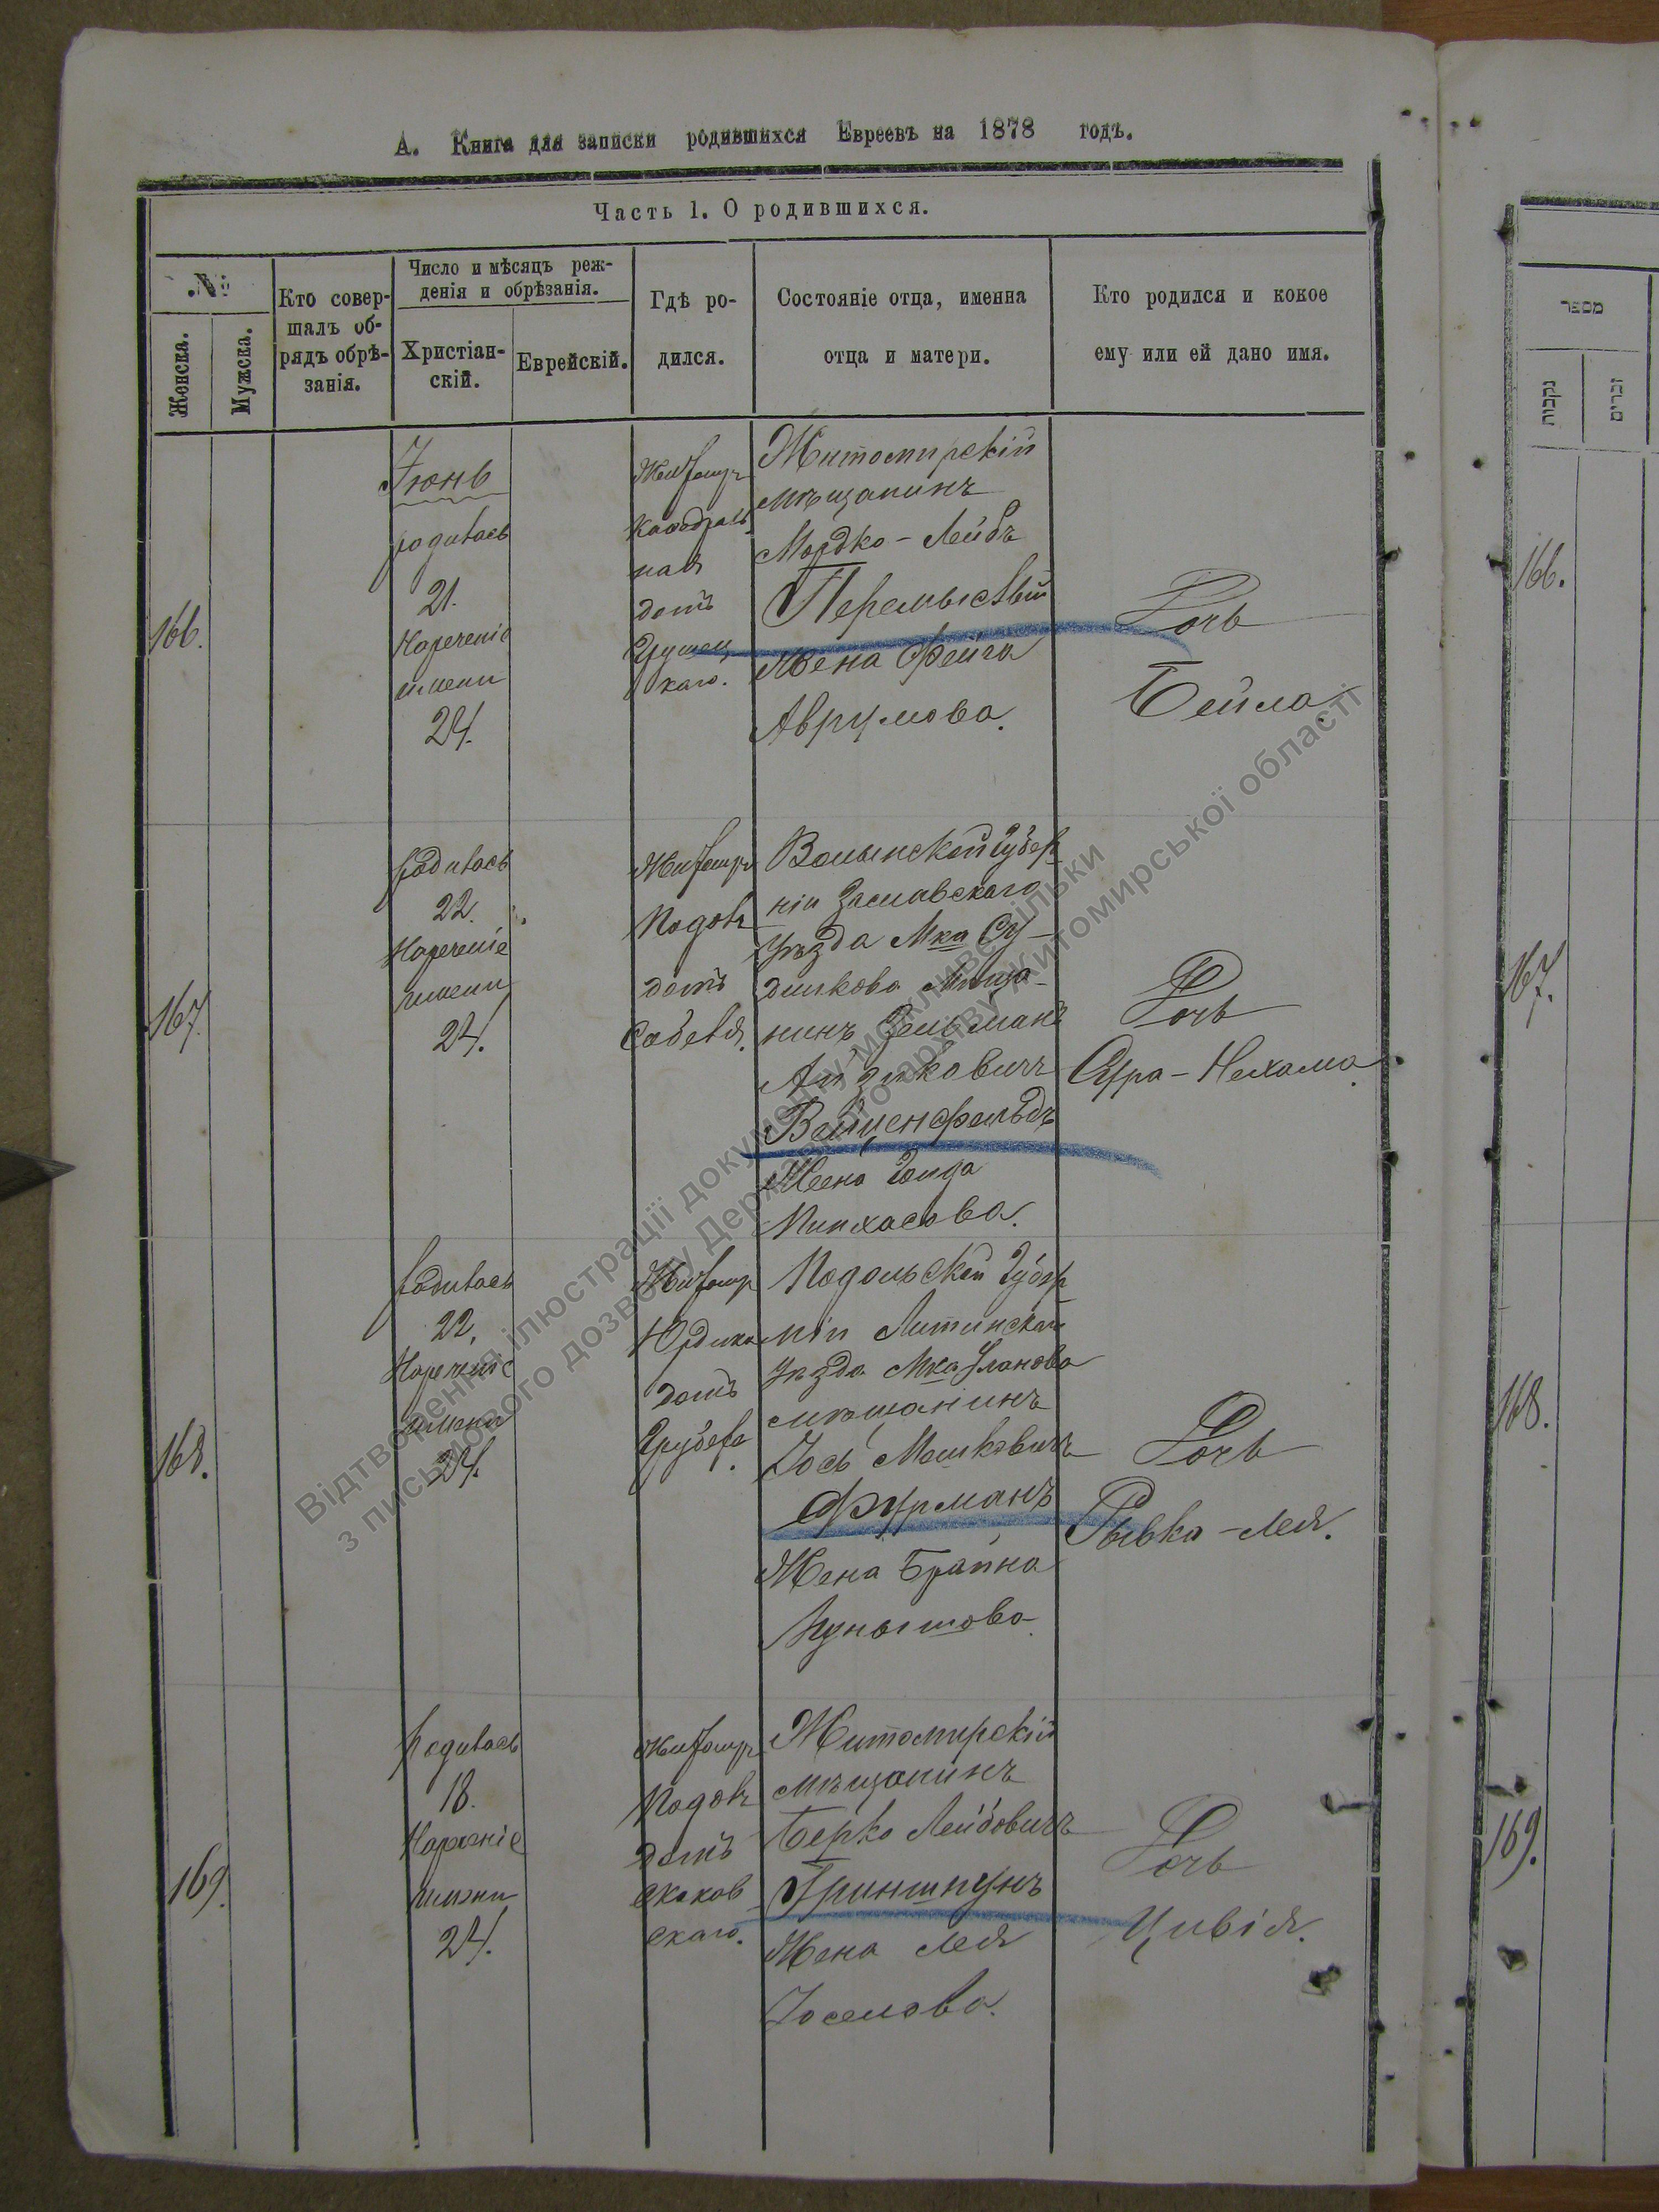 А. Книга для записки родившихся Евреевъ на 1878 годъ.
Часть 1. О родившихся.
№
Женска.
Мужска.
Кто совер-
шалъ об-
рядъ обрѣ-
занія.
Число и мѣсяцъ реж-
денія и обрѣзанія.
Христіан-
скій.
Еврейскій.
Гдѣ ро-
дился.
Состояніе отца, именна
отца и матери.
Кто родился и кокое
ему или ей дано имя.
166.
Іюнь
родилась
21.
Нареченіе
имени
24.
Житомир
Кафедраль
ная
домъ
Житомирскій
мѣщанинъ
Мордко-Лейбъ
Перемыслый
Жена Фейга
Аврумова.
Дочь
Бейла
167.
родилась
22.
Нареченіе
имени
24.
Житомир
Подолъ
домъ
Волынской Губер
ніи Заславскаго
уѣзда Мка Су-
дилкова Мѣща-
нинъ Зельманъ
Айзиковичъ
Вейценфельдъ
Жена Голда
Пинхасова.
Дочь
Сура-Нехама
168.
родилась
22.
Нареченіе
имени
24.
Житомир
Юрдика
домъ
Подольской Губер
ніи Литинскаго
уѣзда Мка Уланова
мѣщанинъ
Іось Мошковичъ
Фурманъ
Жена Брайна
Дочь
Рывка-Лея.
169.
родилась
18.
Нареченіе
имени
24.
Житомир
Подолъ
домъ
Скаков
скаго.
Житомирскій
мѣщанинъ
Берко Лейбовичъ
Гриншпунъ
Жена Лея
Іоселова.
Дочь
Цивія.
מספר
נקבות
זכרים
166.
167.
168.
169.
Відтворення ілюстрації документу можливе тільки
з письмового дозволу Державного архіву Житомирської області